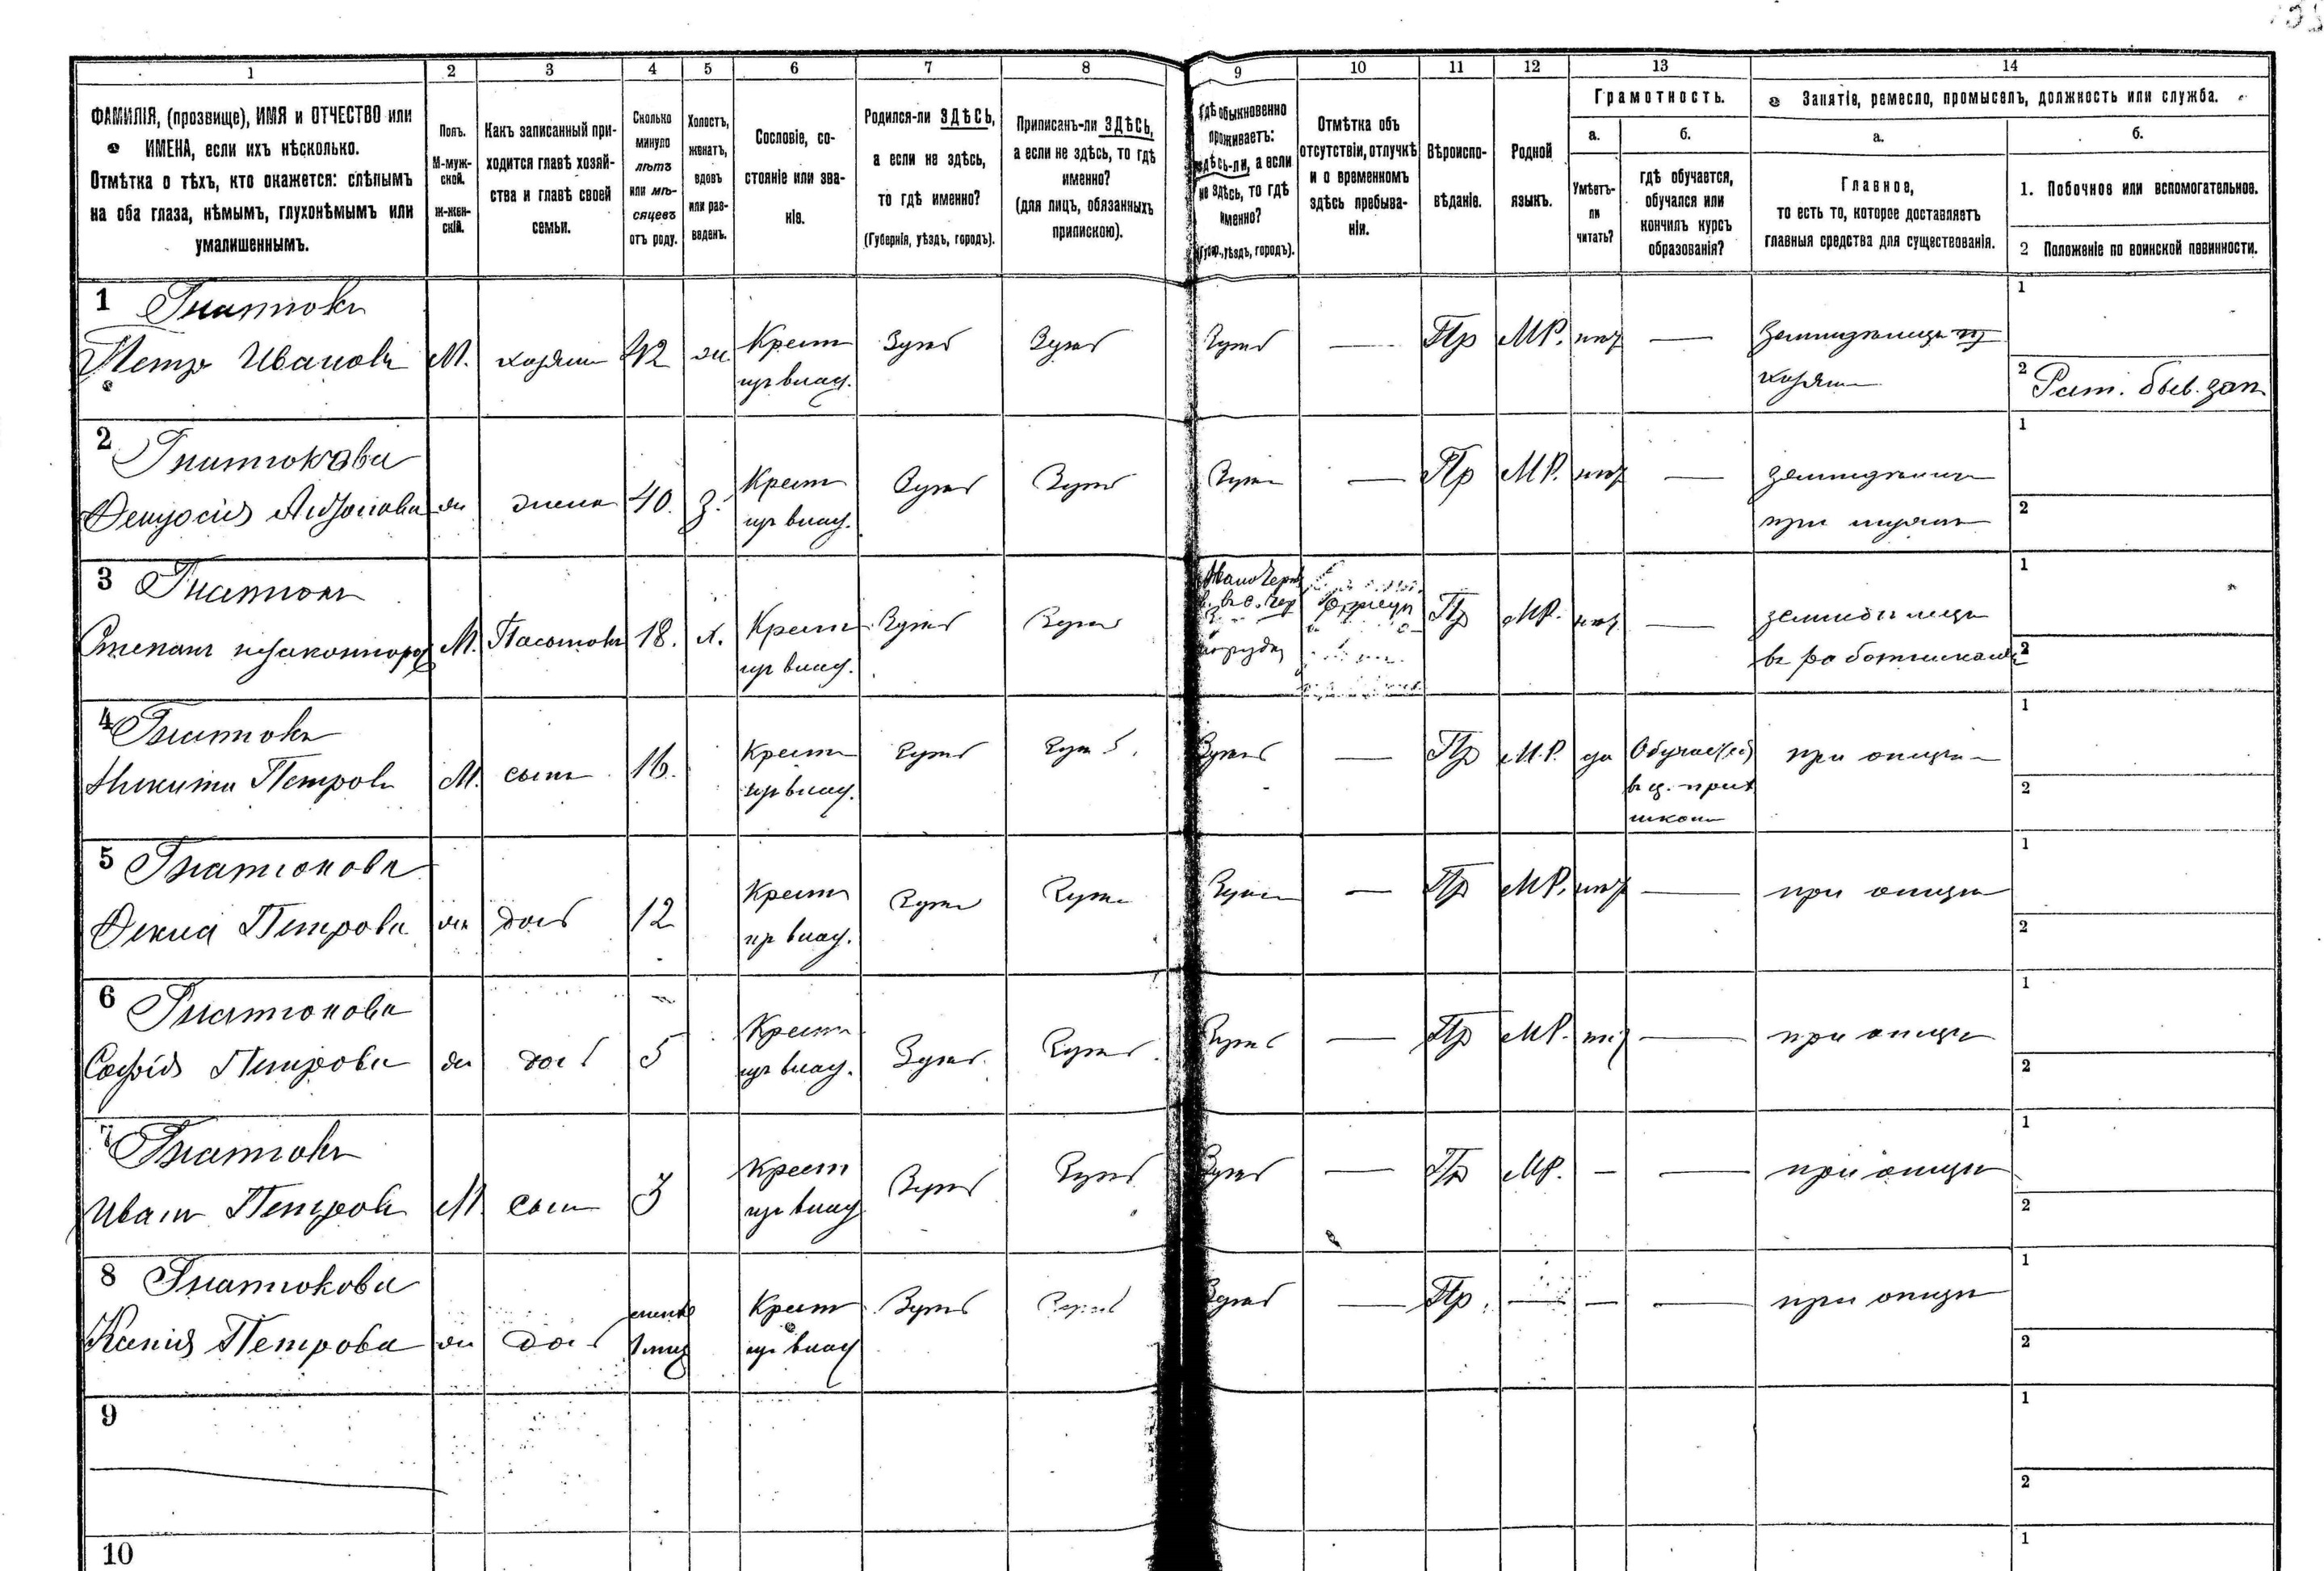 1 2 3 4 5 6 7 8 9 10 11 12 13 14
ФАМИЛІЯ, (прозвище), ИМЯ и ОТЧЕСТВО или
ИМЕНА, если ихъ нѣсколько.
Отмѣтка о тѣхъ, кто окажется: слѣпымъ
на оба глаза, нѣмымъ, глухонѣмымъ или
умалишеннымъ.
Полъ.
М-муж-
ской.
Ж-жен-
скій.
Какъ записанный при-
ходится главѣ хозяй-
ства и главѣ своей
семьи.
Сколько
минуло
лѣтъ
или мѣ-
сяцевъ
отъ роду.
Холостъ,
женатъ,
вдовъ
или раз-
веденъ.
Сословіе, со-
стояніе или зва-
ніе.
Родился-ли ЗДѢСЬ,
а если не здѣсь,
то гдѣ именно?
(Губернія, уѣздъ, городъ).
Приписанъ-ли ЗДѢСЬ,
а если не здѣсь, то гдѣ
именно?
(для лицъ, обязанныхъ
припискою).
Гдѣ обыкновенно
проживаетъ:
здѣсь-ли, а если
не здѣсь, то гдѣ
именно?
(Губ., уѣздъ, городъ).
Отмѣтка объ
отсутствіи, отлучкѣ
и о временномъ
здѣсь пребыва-
ніи.
Вѣроиспо-
вѣданіе.
Родной
языкъ.
Грамотность.
а.
Умѣетъ-
ли
читать?
б.
гдѣ обучается,
обучался или
кончилъ курсъ
образованія?
Занятіе, ремесло, промыселъ, должность или служба.
а.
Главное,
то есть то, которое доставляетъ
главныя средства для существованія.
б.
1. Побочное или вспомогательное.
2 Положеніе по воинской повинности.
1 Гнатюкъ
Петръ Ивановъ М. хозяинъ 42 ж Крест
изъ влад. Здѣсь Здѣсь Здѣсь — Пр МР. нѣт — земледѣлецъ
хозяинъ
1
2 Рат. быв. зап.
2 Гнатюкова
ж жена 40. з. Крест
изъ влад. Здѣсь Здѣсь Здѣсь — Пр МР. нѣт —
земледѣлецъ
при мужѣ
1
2
3 Гнатюкъ
Степанъ незаконнорож М. Пасынокъ 18. х. Крест
изъ влад. Здѣсь Здѣсь
Пр МР. нѣт — земледѣлецъ
въ работникахъ
1
2
4 Гнатюкъ
Никита Петровъ М. сынъ 16. Крест
изъ влад. Здѣсь Здѣсь Здѣсь — Пр М.Р. да Обучается
въ ц. прих
школѣ
при отцѣ
1
2
5 Гнатюкова
Фекла Петрова ж дочь 12 Крест
изъ влад. Здѣсь Здѣсь Здѣсь — Пр МР. нѣт — при отцѣ
1
2
6 Гнатюкова
Софія Петрова ж дочь 5 Крест
изъ влад. Здѣсь Здѣсь Здѣсь — Пр МР. нѣт — при отцѣ
1
2
7 Гнатюкъ
Иванъ Петровъ М сынъ 3 Крест
изъ влад Здѣсь Здѣсь Здѣсь — Пр МР. — — при отцѣ
1
2
8 Гнатюкова
Ксенія Петрова ж дочь менѣе
1 мѣс Крест
изъ влад Здѣсь Здѣсь Здѣсь — Пр. — — — при отцѣ
1
2
9
1
2
10
1